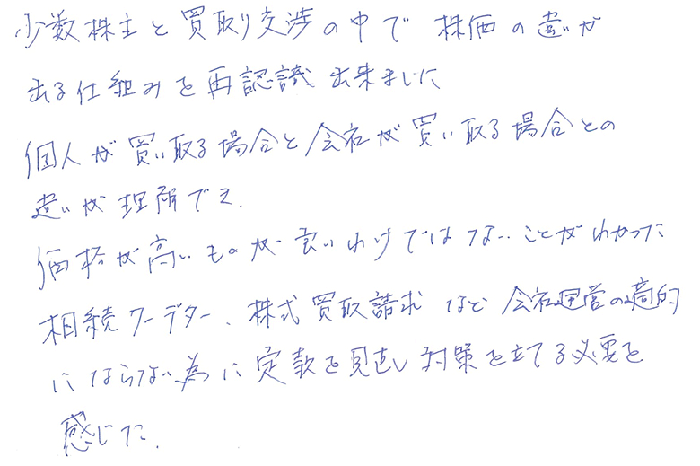 少数株主と買取り交渉の中で 株価の違いが
出る仕組みを再認識出来ました
個人が買い取る場合と会社が買い取る場合との
違いが理解でき
価格が高いものが良いわけではないことがわかった
相続クーデター、株式買取請求 など 会社運営の
にならない為に定款を見直し対策を立てる必要を
感じた.